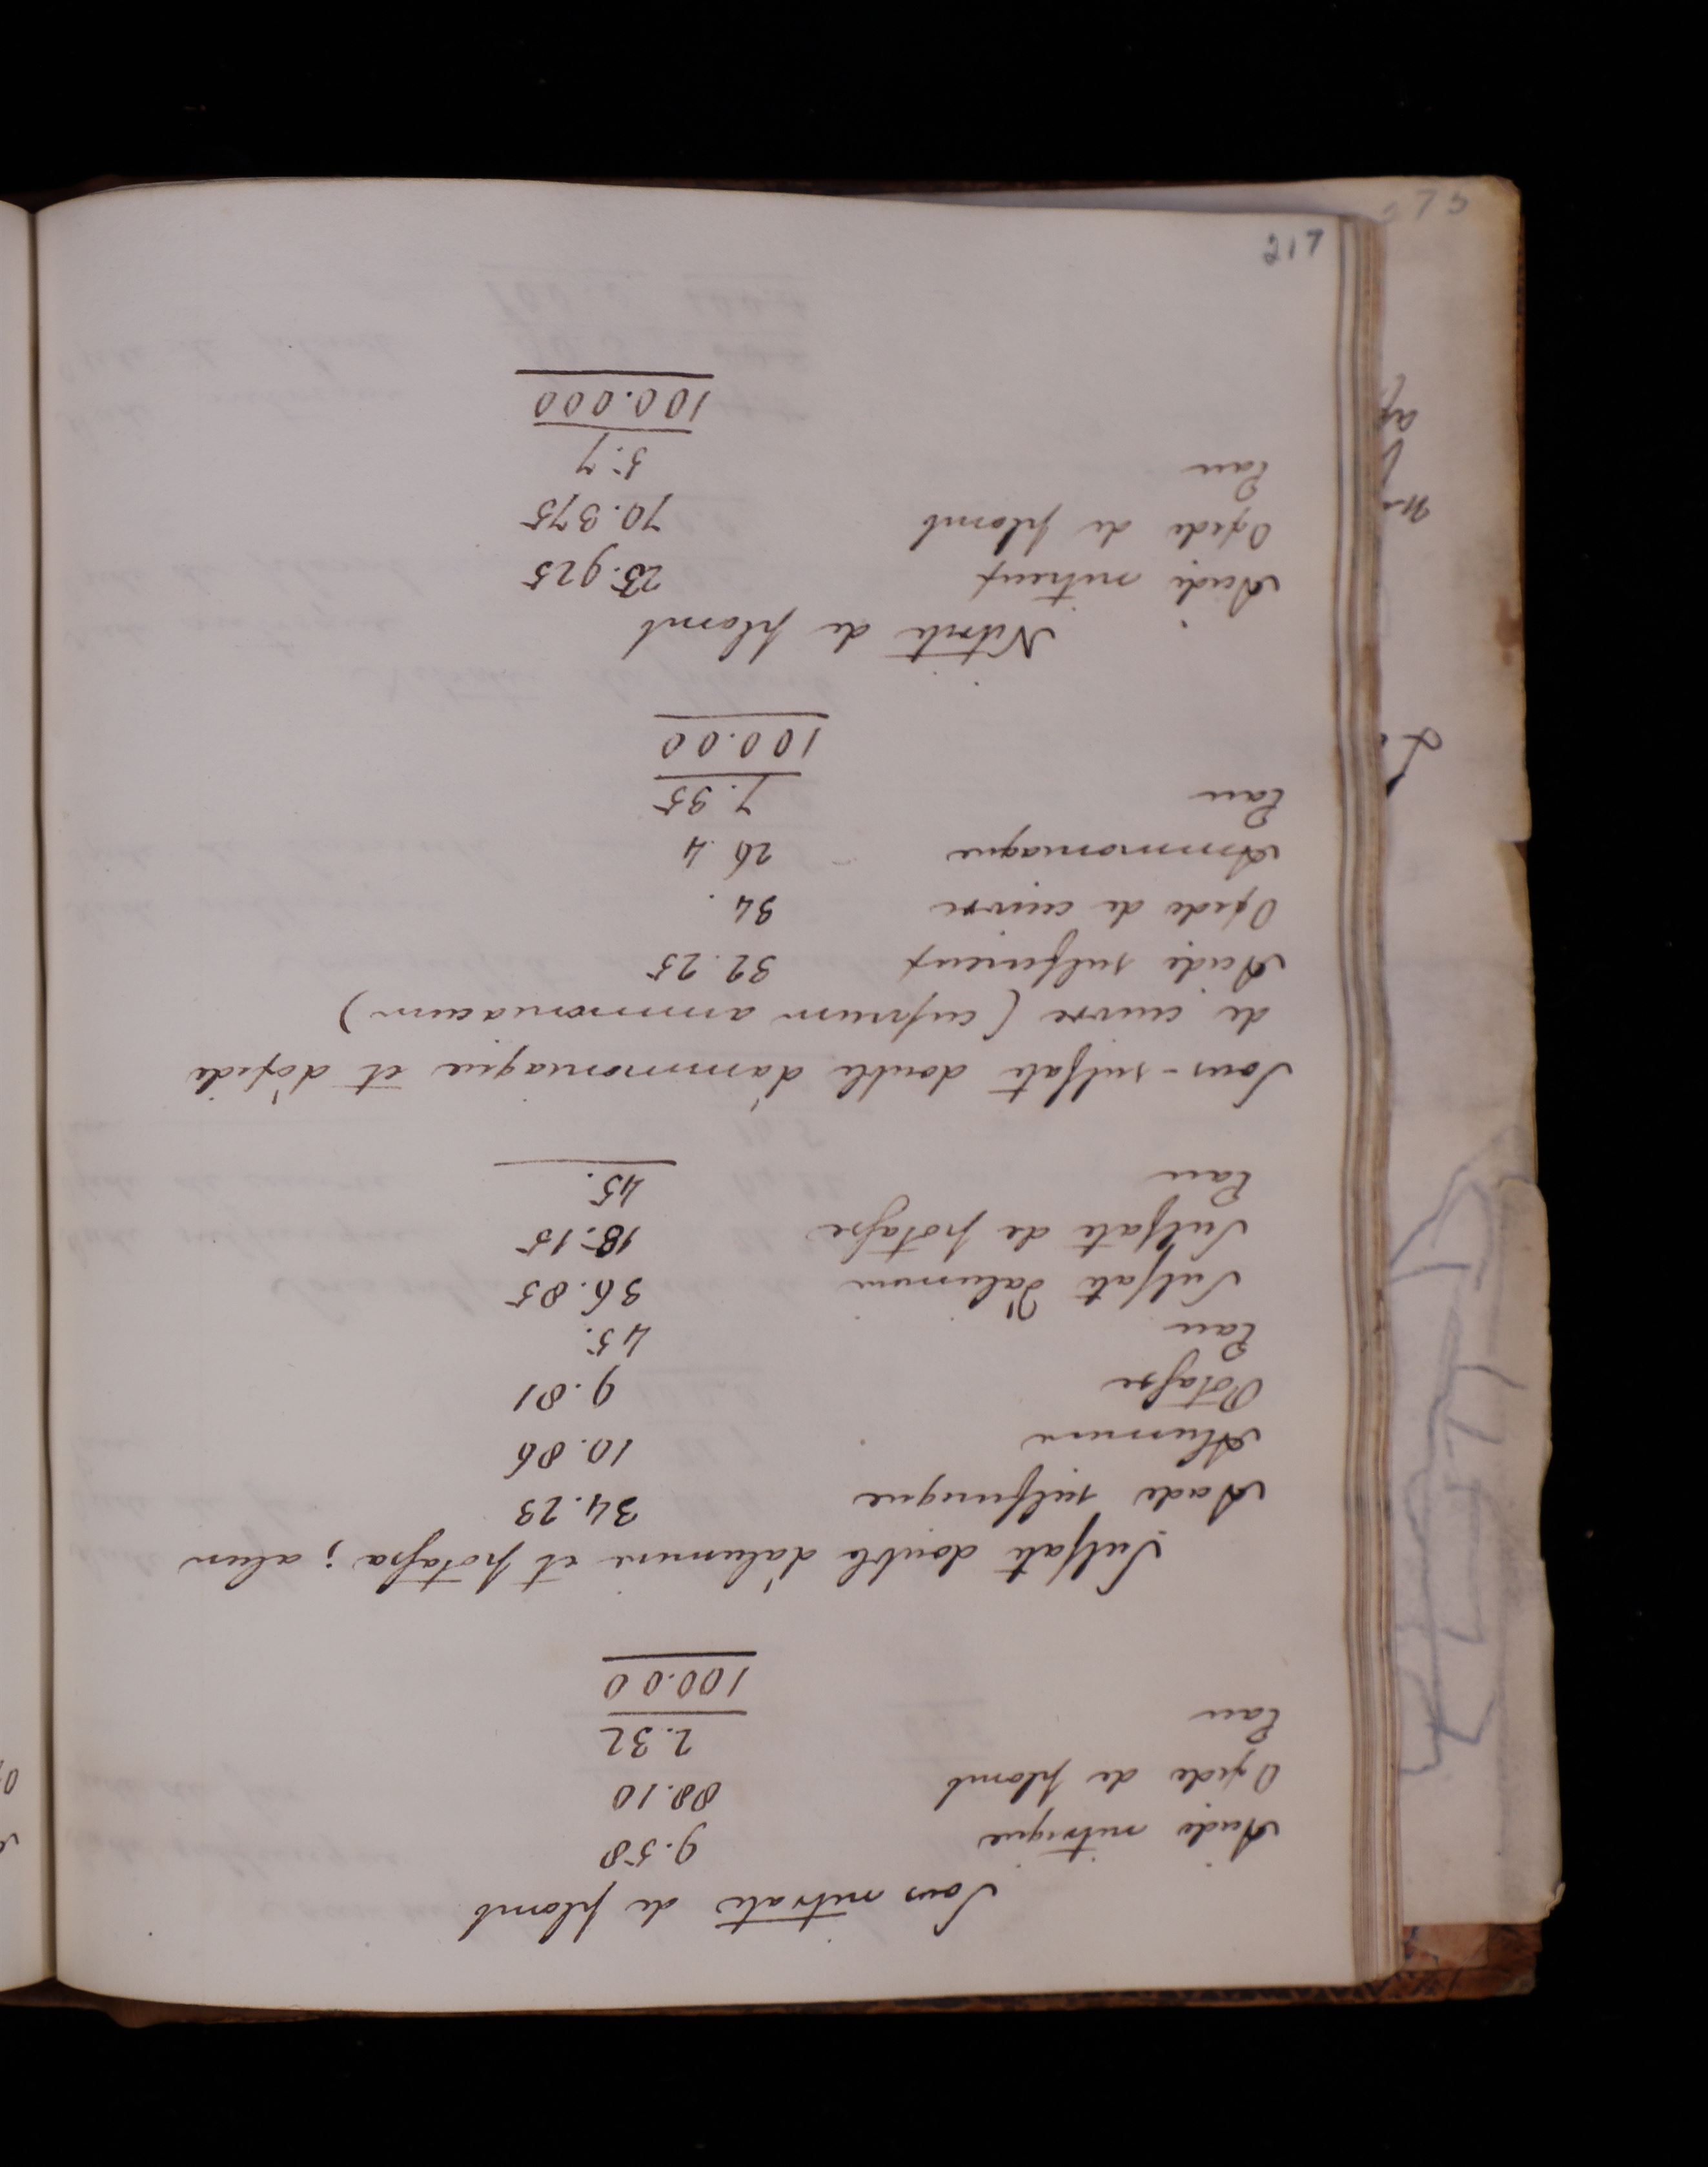 Sous nitrate de plomb
Acide nitrique 9.58
Oxide de plomb 88.10
Eau 2.32
100.00
Sulfate double d'alumine et potasse; alun
Acide sulfurique 34.23
Alumine 10.86
Potasse 9.81
Eau 45.
Sulfate d'alumine 36.85
Sulfate de potasse 18.15
Eau 45.
Sous-sulfate double d'ammoniaque et d'oxide
de cuivre (cuprum ammoniacum)
Acide sulfurieux 32.25
Oxide de cuivre 34.
Ammoniaque 26.4
Eau 7.35
100.00
Nitrite de plomb
Acide nitreux 23.925
Oxide de plomb 70.375
Eau 5.7
100.000
217